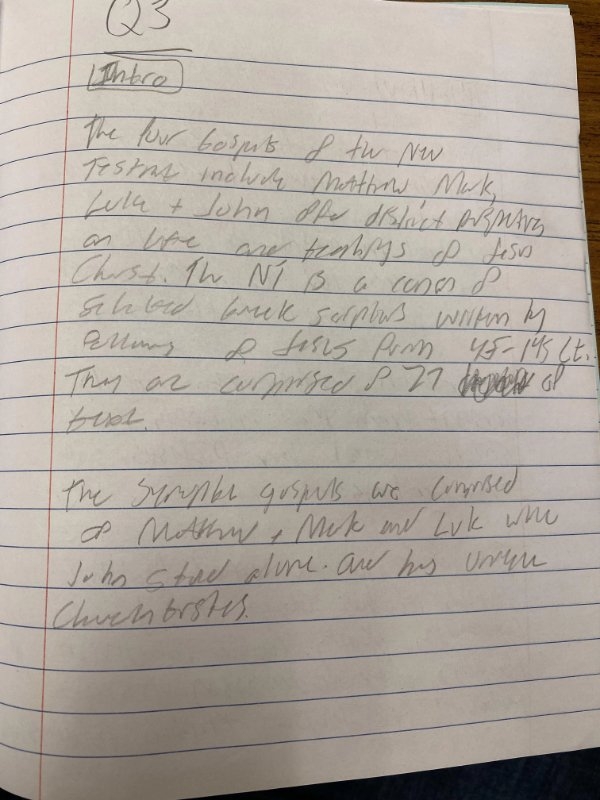 Q3
Intro
The four Gospels of the New
Testmat include Matthew, Mark,
Luke + John offer distict
on life and teachings of Jesus
Christ. The NT is a canon of
Selected Greek written by
of Jesus from 45-145 CE.
They are comprised of 27 of
text.
The Synoptic gospels are comprised
of Matthew + Mark and Luke while
John stand alone. and has unique